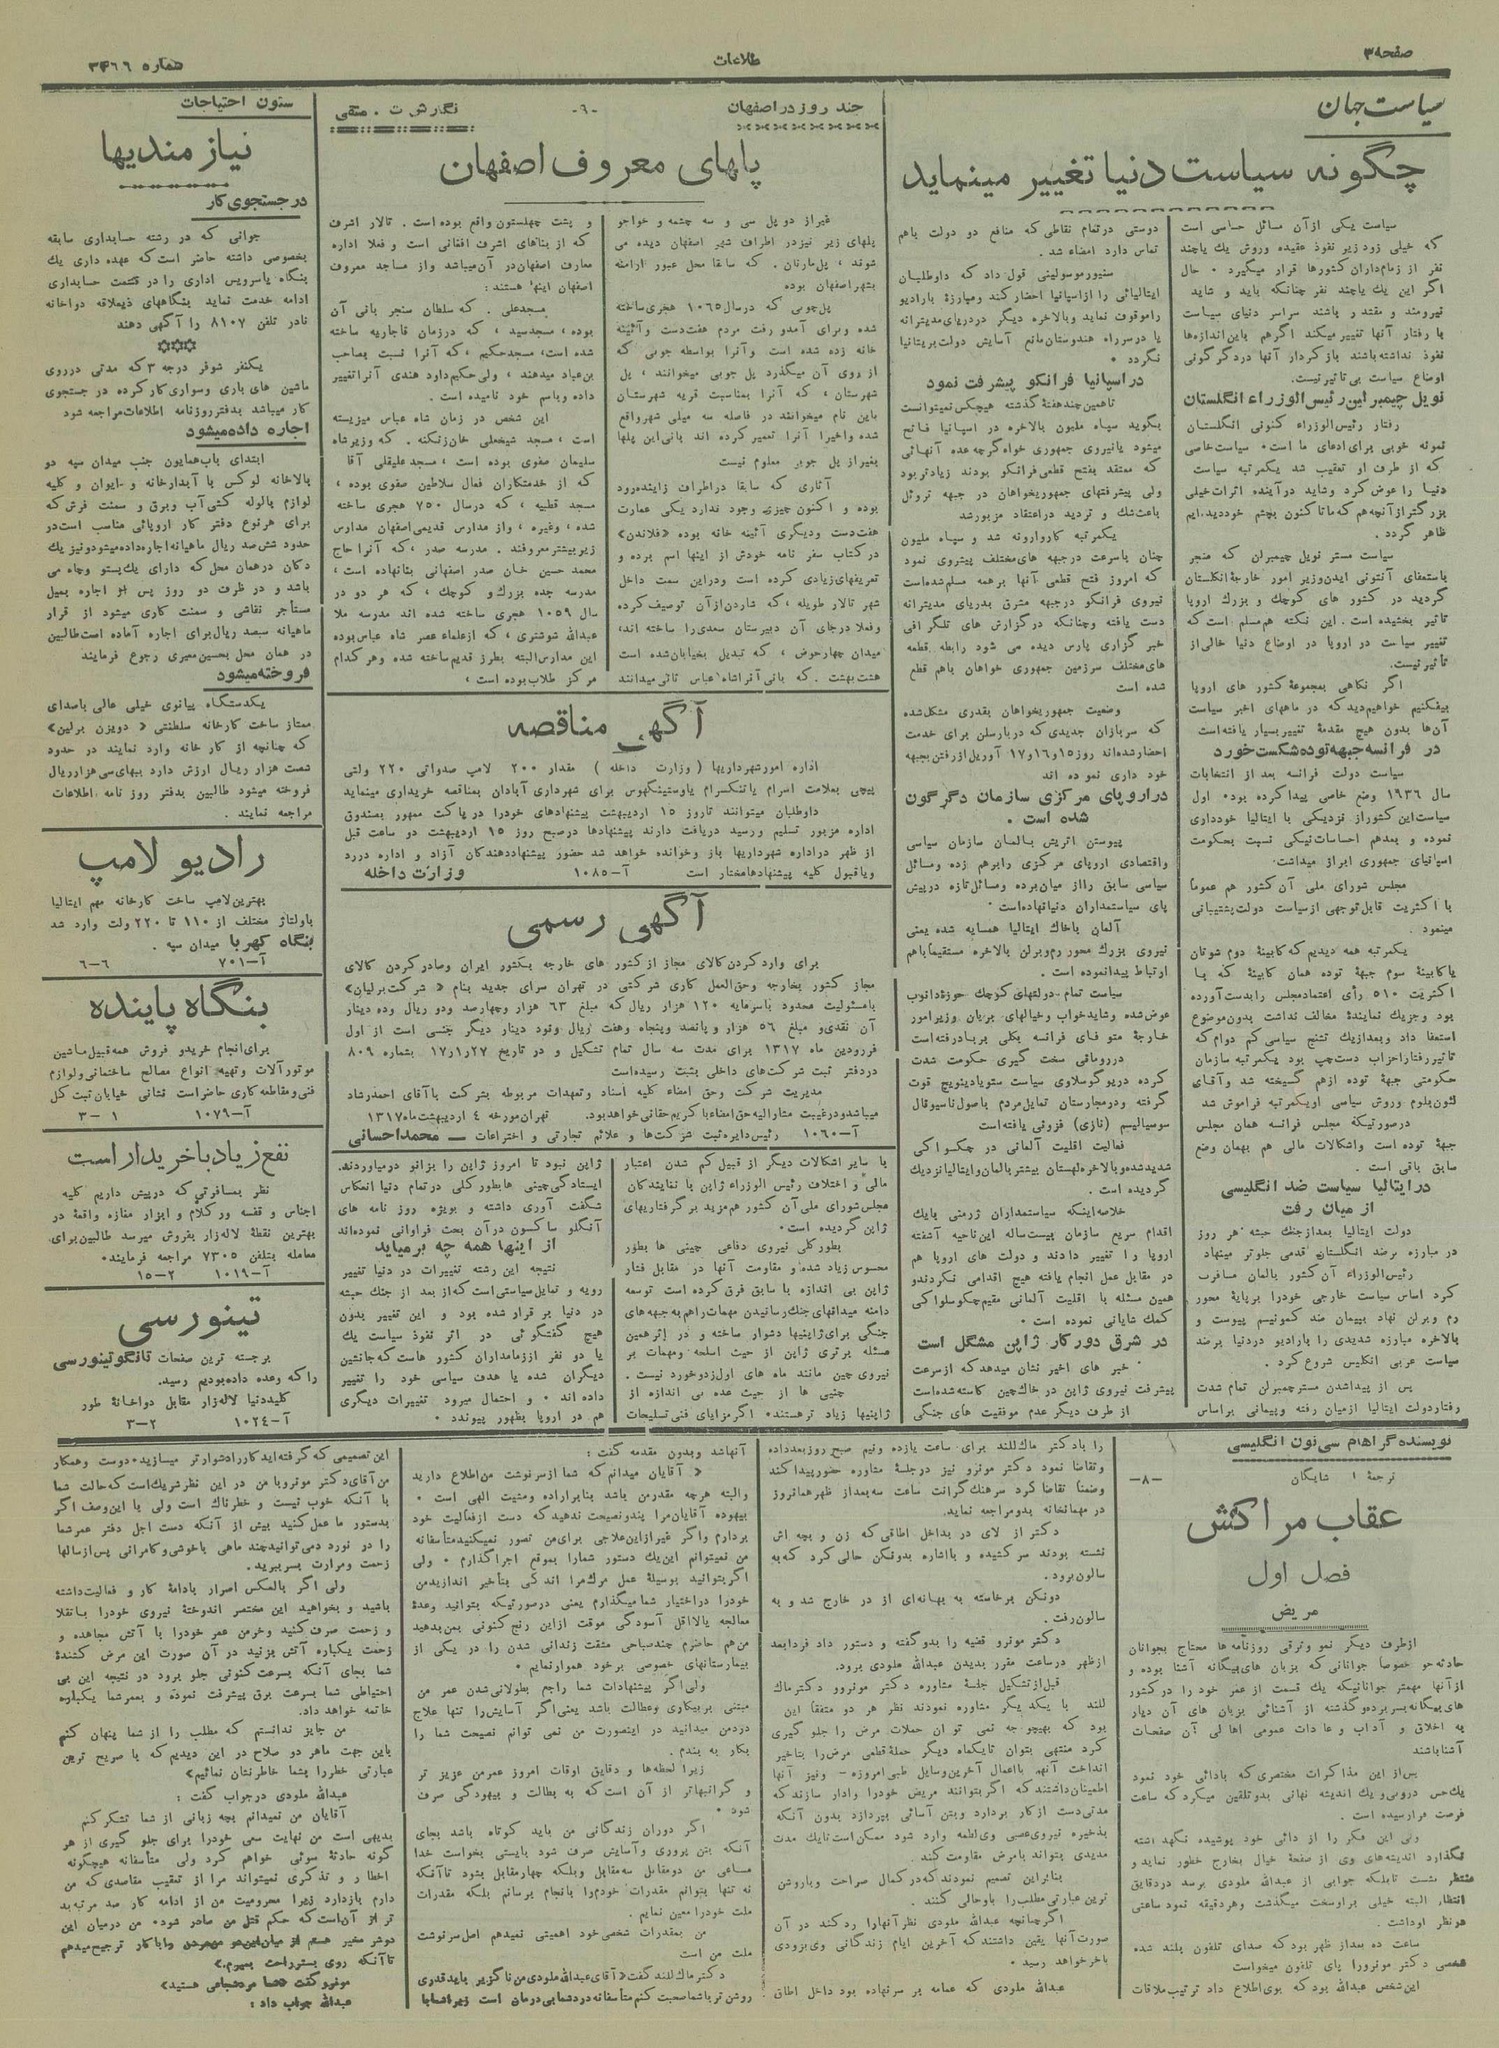 صفحه ۳
طلاعات
شماره ۳۴۶۶
سیاست جهان
چگونه سیاست دنیا تغییر مینماید
سیاست یکی از آن مسائل حساسی است
که خیلی زود زیر نفوذ عقیده وروش یك یاچند
نفر از زمام‌داران کشورها قرار میگیرد ۰ حال
اگر این یك یاچند نفر چنانکه باید و شاید
نیرومند و مقتدر باشند سراسر دنیای سیاست
با رفتار آنها تغییر میکند اگرهم باین‌اندازه‌ها
نفوذ نداشته‌باشند بازکردار آنها دردگرگونی
اوضاع سیاست بی‌تاثیرنیست.
نویل چیمبرلین رئیس‌الوزراء انگلستان
رفتار رئیس‌الوزراء کنونی انگلستان
نمونه خوبی برای‌ادعای ما است۰ سیاست‌خاصی
که از طرف او تعقیب شد یکمرتبه سیاست
دنیا را عوض‌کرد وشاید درآینده اثرات‌خیلی
بزرگتر‌ازآنچه‌هم‌که ماتاکنون بچشم خوددیده‌ایم
ظاهر گردد .
سیاست مستر نویل چیمبرلن که منجر
باستعفای آنتونی ایدن‌وزیر امور خارجهٔ‌انگلستان
گردید در کشور های کوچك و بزرك اروپا
تأثیر بخشیده است. این نکته هم‌مسلم است‌که
تغییر سیاست در اروپا در اوضاع دنیا خالی‌از
تأثیر نیست.
اگر نکاهی بمجموعهٔ کشور های اروپا
بیفکنیم خواهیم‌دیدکه در ماههای اخیر سیاست
آن‌ها بدون هیچ مقدمهٔ تغییر بسیار یافته‌است
در فرانسه جبهه توده شکست‌خورد
سیاست دولت فرانسه بعد از انتخابات
سال ۱۹۳۶ وضع خاصی پیداکرده بود۰ اول
سیاست‌این‌کشوراز نزدیکی با ایتالیا خودداری
نموده و بعدهم احساسات‌نیکی نسبت بحکومت
اسپانیای جمهوری ابراز میداشت.
مجلس شورای ملی آن کشور هم عموماً
با اکثریت قابل‌توجهی ازسیاست دولت‌پشتیبانی
مینمود.
یکمرتبه همه دیدیم که کابینهٔ دوم شوتان
یاکابینهٔ سوم جبههٔ توده همان کابینهٔ که با
اکثریت ۵۱۰ رأی اعتمادمجلس رابدست‌آورده
بود وجزیك نمایندهٔ مخالف نداشت بدون‌موضوع
استعفا داد وبعدازیك تشنج سیاسی کم دوام‌که
تأثیررفتاراحزاب دست‌چپ بود یکمرتبه سازمان
حکومتی جبههٔ توده ازهم گسیخته شد وآقای
لئون‌بلوم وروش سیاسی اویکمرتبه فراموش شد
درصورتیکه مجلس فرانسه همان مجلس
جبههٔ توده است واشکالات مالی هم بهمان وضع
سابق باقی است .
در ایتالیا سیاست ضد انگلیسی
از میان رفت
دولت ایتالیا بعدازجنك حبشه هر روز
در مبارزه برضد انگلستان قدمی جلوتر مینهاد
رئیس‌الوزراء آن کشور بالمان مسافرت
کرد اساس سیاست خارجی خودرا برپایهٔ محور
رم وبرلن نهاد بپیمان ضد کمونیسم پیوست و
بالاخره مبارزه شدیدی را بارادیو دردنیا برضد
سیاست عربی انگلیس شروع کرد .
پس از پیداشدن مسترچمبرلن تمام شدت
رفتاردولت ایتالیا ازمیان رفته وپیمانی براساس
دوستی درتمام نقاطی که منافع دو دولت باهم
تماس دارد امضاء شد.
سنیورموسولینی قول داد که داوطلبان
ایتالیائی را ازاسپانیا احضارکند ومبارزهٔ بارادیو
راموقوف نماید وبالاخره دیگر دردریای مدیترانه
یا درسرراه هندوستان‌مانع آسایش دولت‌بریتانیا
نگردد ۰
در اسپانیا فرانکو پیشرفت نمود
تاهمین‌چندهفتهٔ گذشته هیچکس‌نمیتوانست
بگوید سپاه ملیون بالاخره در اسپانیا فاتح
میشود یانیروی جمهوری خواه‌گرچه‌عده آنهائی
که معتقد بفتح قطعی‌فرانکو بودند زیادتر‌بود
ولی پیشرفتهای جمهوریخواهان در جبهه تروئل
باعث‌شك و تردید دراعتقاد مزبورشد
یکمرتبه کاروارونه شد و سپاه ملیون
چنان باسرعت درجبهه های‌مختلف پیشروی نمود
که امروز فتح قطعی آنها برهمه مسلم‌شده‌است
نیروی فرانکو درجبهه مشرق بدریای مدیترانه
دست یافته وچنانکه درگزارش های تلگرافی
خبر گزاری پارس دیده می شود رابطه قطعه
های‌مختلف سرزمین جمهوری خواهان باهم قطع
شده است
وضعیت جمهوریخواهان بقدری مشکل‌شده
که سربازان جدیدی که دربارسلن برای خدمت
احضارشده‌اند روز ۱۵و۱۶و۱۷ آوریل‌ازرفتن‌بجبهه
خود داری نموده اند
در اروپای مرکزی سازمان دگرگون
شده است .
پیوستن اتریش بالمان سازمان سیاسی
واقتصادی اروپای مرکزی رابرهم زده وسائل
سیاسی سابق رااز میان‌برده وسائل‌تازه درپیش
پای سیاستمداران دنیانهاده‌است ۰
آلمان باخاك ایتالیا همسایه شده یعنی
نیروی بزرك محور رم‌وبرلن بالاخره مستقیماًباهم
ارتباط پیدانموده است .
سیاست تمام۰دولتهای‌کوچك حوزهٔ‌دانوب
عوض‌شده وشایدخواب وخیالهای بریان وزیرامور
خارجهٔ متوفای فرانسه بکلی بربادرفته‌است
دررومانی سخت گیری حکومت شدت
کرده دریوگوسلاوی سیاست ستویادینویچ قوت
گرفته ودرمجارستان تمایل‌مردم باصول‌ناسیونال
سوسیالیسم (نازی) فزونی یافته‌است
فعالیت اقلیت آلمانی در چکسواکی
شدیدشده‌وبالاخره‌لهستان بیشتربالمان‌وایتالیانزدیك
گردیده است .
خلاصه‌اینکه سیاستمداران ژرمنی بایك
اقدام سریع سازمان بیست‌ساله این‌ناحیه آشفته
اروپا را تغییر دادند و دولت های اروپا هم
در مقابل عمل انجام یافته هیچ اقدامی نکردندو
همین مسئله با اقلیت آلمانی مقیم‌چکوسلواکی
کمك شایانی نموده است ۰
در شرق دور کار ژاپن مشگل است
خبر های اخیر نشان میدهدکه ازسرعت
پیشرفت نیروی ژاپن در خاك‌چین کاسته‌شده‌است
از طرف دیگر عدم موفقیت های جنگی
یا سایر اشکالات دیگر از قبیل کم شدن اعتبار
مالی و اختلاف رئیس الوزراء ژاپن با نمایندکان
مجلس‌شورای ملی‌آن کشورهم‌مزید بر گرفتاریهای
ژاپن گردیده است۰
بطورکلی نیروی دفاعی چینی ها بطور
محسوس زیاد شده و مقاومت آنها در مقابل فشار
ژاپن بی اندازه با سابق فرق کرده است توسعه
دامنه میدانهای جنك‌رسانیدن مهمات راهم به‌جبهه‌های
جنگی برای‌ژاپنیها دشوار ساخته و در اثرهمین
مسئله برتری ژاپن از حیث اسلحه ومهمات بر
نیروی چین مانند ماه های اول‌زدوخورد نیست .
چینی ها از حیث عده بی اندازه از
ژاپنیها زیاد ترهستند۰ اگرمزایای فنی‌تسلیحات
ژاپن نبود تا امروز ژاپن را بزانو درمیآوردند.
ایستادگی‌چینی هابطورکلی درتمام دنیا انعکاس
شگفت آوری داشته و بویژه روز نامه های
آنگلو ساکسون درآن بحث فراوانی نموده‌اند
از اینها همه چه برمیاید
نتیجه این رشته تغییرات در دنیا تغییر
رویه و تمایل‌سیاستی است که‌از بعد از جنك حبشه
در دنیا بر قرار شده بود و این تغییر بدون
هیچ گفتگوئی در اثر نفوذ سیاست یك
یا دو نفر اززمامداران کشور هاست‌که جانشین
دیگران شده یا هدف سیاسی خود را تغییر
داده اند ۰ و احتمال میرود تغییرات دیگری
هم در اروپا بظهور پیوندد ۰
چند روز در اصفهان
-۶-
نگارش ت . متقی
پلهای معروف اصفهان
غیراز دوپل سی و سه چشمه و خواجو
پلهای زیر نیزدر اطراف شهر اصفهان دیده می
شوند ، پل‌مارنان . که سابقا محل عبور ارامنه
بشهراصفهان بوده
پل‌چوبی که درسال ۱۰۶۵ هجری‌ساخته
شده وبرای آمدو رفت مردم هفت‌دست وآئینه
خانه زده شده است وآنرا بواسطه جوبی که
ازروی آن میگذرد پل جوبی میخوانند ، پل
شهرستان ، که آنرا بمناسبت قریه شهرستان
باین نام میخوانند در فاصله سه میلی شهرواقع
شده واخیرا آنرا تعمیر کرده اند بانی‌این پلها
بغیراز پل جوبی معلوم نیست
آثاری که سابقا دراطراف زاینده‌رود
بوده و اکنون چیزی وجود ندارد یکی عمارت
هفت‌دست ودیگری آئینه خانه بوده «فلاندن»
درکتاب سفر نامه خودش از اینها اسم برده و
تعریفهای‌زیادی کرده است ودراین سمت داخل
شهر تالار طویله ، که شاردن‌از‌آن توصیف‌کرده
وفعلا درجای آن دبیرستان سعدی‌را ساخته اند،
میدان چهارحوض ، که تبدیل بخیابان‌شده است
هشت‌بهشت . که بانی آنراشاه عباس ثانی‌میدانند
و پشت چهلستون واقع بوده است . تالار اشرف
که از بناهای اشرف افغانی است و فعلا اداره
معارف اصفهان‌در آن‌میباشد واز مساجد معروف
اصفهان اینها هستند :
مسجدعلی . که سلطان سنجر بانی آن
بوده ، مسجدسید ، که درزمان قاجاریه ساخته
شده است، مسجدحکیم ، که آنرا نسبت بصاحب
بن‌عباد میدهند ، ولی حکیم‌داود هندی آنراتغییر
داده وباسم خود نامیده است .
این شخص در زمان شاه عباس میزیسته
است ، مسجد شیخعلی خان‌زنگنه . که وزیرشاه
سلیمان صفوی بوده است ، مسجدعلیقلی آقا
که از خدمتکاران فعال سلاطین صفوی بوده ،
مسجد قطبیه ، که درسال ۷۵۰ هجری ساخته
شده ، وغیره ، واز مدارس قدیمی‌اصفهان مدارس
زیربیشترمعروفند . مدرسه صدر ، که آنرا حاج
محمد حسین خان صدر اصفهانی بنانهاده است ،
مدرسه جده بزرك و کوچك ، که هر دو در
سال ۱۰۵۹ هجری ساخته شده اند مدرسه ملا
عبدالله شوشتری ، که ازعلماء عصر شاه عباس‌بوده
این مدارس‌البته بطرز قدیم‌ساخته شده وهرکدام
مرکز طلاب‌بوده است ،
آگهی مناقصه
اداره امورشهرداریها ( وزارت داخله ) مقدار ۲۰۰ لامپ صدواتی ۲۲۰ ولتی
پیچی بعلامت اسرام یاتنکسرام یاوستینگهوس برای شهرداری آبادان بمناقصه خریداری مینماید
داوطلبان میتوانند تاروز ۱۵ اردیبهشت پیشنهادهای خودرا درپاکت ممهور بصندوق
اداره مزبور تسلیم ورسید دریافت دارند پیشنهادها درصبح روز ۱۵ اردیبهشت دو ساعت قبل
از ظهر دراداره شهرداریها باز وخوانده خواهد شد حضور پیشنهاددهندکان آزاد و اداره دررد
ویاقبول کلیه پیشنهادهامختار است آ–۱۰۸۵ وزارت داخله
آگهی رسمی
برای واردکردن‌کالای مجاز ازکشور های خارجه بکشور ایران وصادرکردن کالای
مجاز کشور بخارجه وحق‌العمل کاری شرکتی در تهران سرای جدید بنام « شرکت‌برلیان»
بامسئولیت محدود باسرمایه ۱۲۰ هزار ریال‌که مبلغ ۶۳ هزار وچهارصد ودو ریال وده دینار
آن نقدی‌و مبلغ ۵۶ هزار و پانصد وپنجاه وهفت ریال ونود دینار دیگر جنسی است از اول
فروردین ماه ۱۳۱۷ برای مدت سه سال تمام تشکیل و در تاریخ ۱۷ر۱ر۲۷ بشماره ۸۰۹
دردفتر ثبت شرکت‌های داخلی بثبت رسیده‌است
مدیریت شرکت وحق امضاء کلیه اسناد وتعهدات مربوطه بشرکت باآقای احمدرشاد
میباشدودرغیبت مشارالیه‌حق‌امضاءباکریم‌حقانی‌خواهدبود. تهران‌مورخه ٤ اردیبهشت‌ماه۱۳۱۷
آ–۱۰۶۰ رئیس‌دایره‌ثبت شرکت‌ها و علائم تجارتی و اختراعات – محمداحسانی
ستون احتیاجات
نیازمندیها
در جستجوی کار
جوانی که در رشته حسابداری سابقه
بخصوصی داشته حاضر است‌که عهده داری یك
بنگاه یاسرویس اداری را در قسمت حسابداری
ادامه خدمت نماید بنگاههای ذیعلاقه دواخانه
نادر تلفن ۸۱۰۷ را آگهی دهند
یکنفر شوفر درجه ۳که مدتی درروی
ماشین های‌باری وسواری‌کار‌کرده در جستجوی
کار میباشد بدفترروزنامه اطلاعات‌مراجعه شود
اجاره داده میشود
ابتدای باب‌همایون جنب میدان سپه دو
بالاخانه لوکس با آبدارخانه و ایوان و کلیه
لوازم بالوله کشی‌آب وبرق و سمنت فرش‌که
برای هرنوع دفتر کار اروپائی مناسب است‌در
حدود شش‌صد ریال ماهیانه‌اجاره‌داده‌میشودونیز یك
دکان درهمان محل که دارای یك‌پستو وچاه می
باشد و در ظرف دو روز پس از اجاره بمیل
مستأجر نقاشی و سمنت کاری میشود از قرار
ماهیانه سیصد ریال‌برای اجاره آماده است‌طالبین
در همان محل بحسین‌ممیزی رجوع فرمایند
فروخته میشود
یکدستگاه پیانوی خیلی عالی باصدای
ممتاز ساخت کارخانه سلطنتی « دویزن برلین»
که چنانچه از کار خانه وارد نمایند در حدود
شصت هزار ریال ارزش دارد ببهای‌سی هزارریال
فروخته میشود طالبین بدفتر روز نامه اطلاعات
مراجعه نمایند .
رادیو لامپ
بهترین‌لامپ ساخت کارخانه مهم ایتالیا
باولتاژ مختلف از ۱۱۰ تا ۲۲۰ ولت وارد شد
بنگاه کهربا میدان سپه .
آ–۷۰۱ ۶–۶
بنگاه پاینده
برای‌انجام خریدو فروش همه‌قبیل‌ماشین
موتورآلات وتهیه انواع مصالح ساختمانی‌ولوازم
فنی‌ومقاطعه‌کاری حاضراست نشانی خیابان‌ثبت کل
آ–۱۰۷۹ ۱–۳
نفع زیاد باخریدار است
نظر بمسافرتی‌که درپیش داریم کلیه
اجناس و قفسه ورکلام و ابزار مغازه واقعهٔ در
بهترین نقطهٔ لاله‌زار بفروش میرسد طالبین‌برای
معامله بتلفن ۷۳۰۵ مراجعه فرمایند۰
آ–۱۰۱۹ ۲–۱۵
تینو رسی
برجسته ترین صفحات تانگو تینورسی
راکه وعده داده‌بودیم رسید.
کلیددنیا لاله‌زار مقابل دواخانهٔ طور
آ–۱۰۲۴ ۲–۳
نویسنده گراهام سی نون انگلیسی
ترجمهٔ ا شایگان
–۸–
عقاب مراکش
فصل اول
مریض
ازطرف دیگر نمو وترقی روزنامه‌ها محتاج بجوانان
حادثه‌جو خصوصا جوانانی که بزبان های‌بیگانه آشنا بوده و
ازآنها مهمتر جوانانیکه یك قسمت از عمر خود را درکشور
های‌بیگانه‌بسربرده‌وگذشته از آشنائی بزبان های آن دیار
به اخلاق و آداب و عادات عمومی اهالی آن صفحات
آشناباشند
پس‌از این مذاکرات مختصری که بادائی خود نمود
یك‌حس درونی‌و یك اندیشه نهانی بدوتلقین میکرد که ساعت
فرصت فرارسیده است .
ولی این فکر را از دائی خود پوشیده نگهد اشته
نگذارد اندیشه‌های وی از صفحهٔ خیال بخارج خطور نماید و
منتظر نشست تابلکه جوابی از عبدالله ملودی برسد دردقایق
انتظار البته خیلی براوسخت میگذشت وهردقیقه نمود ساعتی
هونظر اوداشت .
ساعت ده بعداز ظهر بودکه صدای تلفون بلند شده
شخصی دکتر مونرورا پای تلفون میخواست
این‌شخص عبدالله بودکه بوی‌اطلاع داد ترتیب‌ملاقات
را بادکتر ماك‌للند برای ساعت یازده ونیم صبح روزبعدداده
وتقاضا نمود دکتر مونرو نیز درجلسهٔ مشاوره حضورپیداکند
وضمناً تقاضاکرد سرهنك‌گرانت ساعت سه‌بعداز ظهرهمانروز
در مهمانخانه بدومراجعه نماید.
دکتر از لای در بداخل اطاقی‌که زن و بچه اش
نشسته بودند سرکشیده و بااشاره بدونکن حالی کرد که‌به
سالون‌برود.
دونکن برخاسته به بهانه‌ای از در خارج شد و به
سالون‌رفت.
دکتر مونرو قضیه را بدوگفته و دستور داد فردابعد
ازظهر درساعت مقرر بدیدن عبدالله ملودی برود.
قبل‌ازتشکیل جلسهٔ مشاوره دکتر مونروو دکترماك
للند با یکدیگر مشاوره نمودند نظر هر دو متفقاً این
بود که بهیچوجه نمی توان حملات مرض را جلو گیری
کرد منتهی بتوان تایکماه دیگر حملهٔ قطعی مرض‌را بتاخیر
انداخت آنهم بااعمال آخرین‌وسایل طبی‌امروزه – ونیز آنها
اطمینان‌داشتندکه اگربتوانند مریض خودرا وادار سازند که
مدتی‌دست ازکار بردارد وبتن آسائی بپردازد بدون آنکه
بذخیره نیروی‌عصبی وی‌لطمه وارد شود ممکن‌است‌تایك مدت
مدیدی بتواند بامرض مقاومت کند.
بنابراین تصمیم نمودندکه‌درکمال صراحت وباروشن
ترین عبارتی مطلب‌را باوحالی کنند.
اگرچنانچه عبدالله ملودی نظرآنهارا ردکند در آن
صورت‌آنها یقین داشتندکه آخرین ایام زندگانی وی‌بزودی
بآخرخواهد رسید ۰
عبدالله ملودی که عمامه بر سرنهاده بود داخل اطاق
آنهاشد وبدون مقدمه گفت :
« آقایان میدانم‌که شما ازسرنوشت من‌اطلاع دارید
والبته هرچه مقدرمن باشد بنابراراده ومشیت الهی است ۰
بیهوده آقایان‌مرا پندونصیحت ندهیدکه دست ازفعالیت خود
بردارم واگر غیرازاین‌علاجی برای‌من تصور نمیکنید‌متأسفانه
من نمیتوانم این‌یك دستور شمارا بموقع اجراگذارم ۰ ولی
اگربتوانید بوسیلهٔ عمل مرك‌مرا اندکی بتأخیر اندازیدمن
خودرا دراختیار شمامیگذارم یعنی درصورتیکه بتوانید وعدهٔ
معالجه یالااقل آسودگی موقت ازاین رنج‌کنونی بمن‌بدهید
من‌هم حاضرم چندصباحی مشقت زندانی شدن را در یکی از
بیمارستانهای خصوصی برخود هموارنمایم ۰
ولی‌اگر پیشنهادات شما راجع بطولانی‌شدن عمر من
مبتنی بربیکاری وعطالت باشد یعنی‌اگر آسایش‌را تنها علاج
دردمن میدانید در اینصورت من نمی توانم نصیحت شما را
بکار به بندم .
زیرا لحظه‌ها و دقایق اوقات امروز عمرمن عزیز تر
و گرانبهاتر از آن است‌که به بطالت و بیهودگی صرف
شود ۰
اگر دوران زندگانی من باید کوتاه باشد بجای
آنکه بتن پروری وآسایش صرف شود بایستی بخواست خدا
مساعی من دومقابل سه‌مقابل وبلکه چهارمقابل بشود تاآنکه
نه تنها بتوانم مقدرات خودم‌را باانجام برسانم بلکه مقدرات
ملت خودرا معین نمایم .
من بمقدرات شخصی‌خود اهمیتی نمیدهم اصل‌سرنوشت
ملت من است
دکترماك‌للند گفت «آقای‌عبدالله‌ملودی‌من‌ناگزیر بایدقدری
روشن تربا‌شماصحبت کنم‌متأسفانه دردشمابی‌درمان است زیراشمابا
این تصمیمی که گرفته‌اید کاررا‌دشوارتر میسازید۰ دوست وهمکار
من‌آقای‌دکتر مونروبا من در این نظر شریك‌است‌که‌حالت شما
با آنکه خوب نیست و خطرناك است ولی با این‌وصف اگر
بدستور ما عمل‌کنید بیش از آنکه دست اجل دفتر عمرشما
را در نورد دمی‌توانیدچند ماهی باخوشی‌وکامرانی پس‌ازسالها
زحمت ومرارت بسرببرید.
ولی اگر بالعکس اصرار بادامهٔ کار و فعالیت‌داشته
باشید و بخواهید این مختصر اندوختهٔ نیروی خودرا باتقلا
و زحمت صرف‌کنید وخرمن عمر خودرا با آتش مجاهده و
زحمت یکباره آتش بزنید در آن صورت این مرض کشندهٔ
شما بجای آنکه بسرعت کنونی جلو برود در نتیجه این بی
احتیاطی شما بسرعت برق پیشرفت نموده و بعمرشما یکباره
خاتمه خواهد داد.
من جایز ندانستم که مطلب را از شما پنهان کنم
باین جهت ماهر دو صلاح در این دیدیم که با صریح ترین
عبارتی خطررا بشما خاطرنشان نمائیم»
عبدالله ملودی درجواب گفت :
آقایان من نمیدانم بچه زبانی از شما تشکرکنم
بدیهی است من نهایت سعی خودرا برای جلو گیری از هر
گونه حادثهٔ سوئی خواهم کرد ولی متأسفانه هیچگونه
اخطا ر و تذکری نمیتواند مرا از تعقیب مقاصدی که من
دارم بازدارد زیرا محرومیت من از ادامه کار صد مرتبه‌بد
تر از آن‌است که حکم قتل من صادر شود۰ من درمیان این
دوشر مخیر هستم از میان‌این‌دو مردن باکار ترجیح‌میدهم
تاآنکه روی بسترراحت بمیرم.»
مونروگفت «شما مردشجاعی هستید»
عبدالله جواب داد :